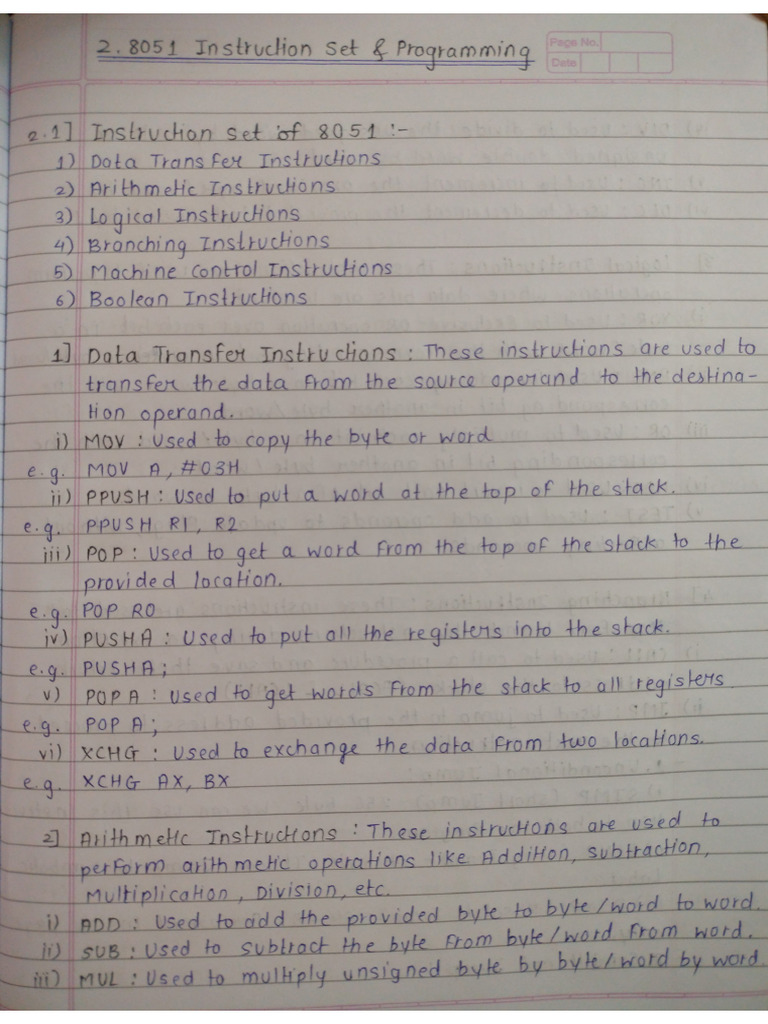 2. 8051 Instruction Set & Programming
Page No.
Date
2.1] Instruction set of 8051 :-
1) Data Transfer Instructions
2) Arithmetic Instructions
3) Logical Instructions
4) Branching Instructions
5) Machine Control Instructions
6) Boolean Instructions
1] Data Transfer Instructions : These instructions are used to
transfer the data from the source operand to the destina-
tion operand.
i) MOV : Used to copy the byte or word
e.g. MOV A, #03H
ii) PPUSH : Used to put a word at the top of the stack.
e.g. PPUSH R1, R2
iii) POP : Used to get a word from the top of the stack to the
provided location.
e.g. POP R0
iv) PUSHA : Used to put all the registers into the stack.
e.g. PUSHA;
v) POPA : Used to get words from the stack to all registers
e.g. POP A;
vi) XCHG : Used to exchange the data from two locations.
e.g. XCHG AX, BX
2] Arithmetic Instructions : These instructions are used to
perform arithmetic operations like Addition, subtraction,
Multiplication, Division, etc.
i) ADD : Used to add the provided byte to byte/word to word.
ii) SUB : Used to subtract the byte from byte/word from word.
iii) MUL : Used to multiply unsigned byte by byte/word by word.